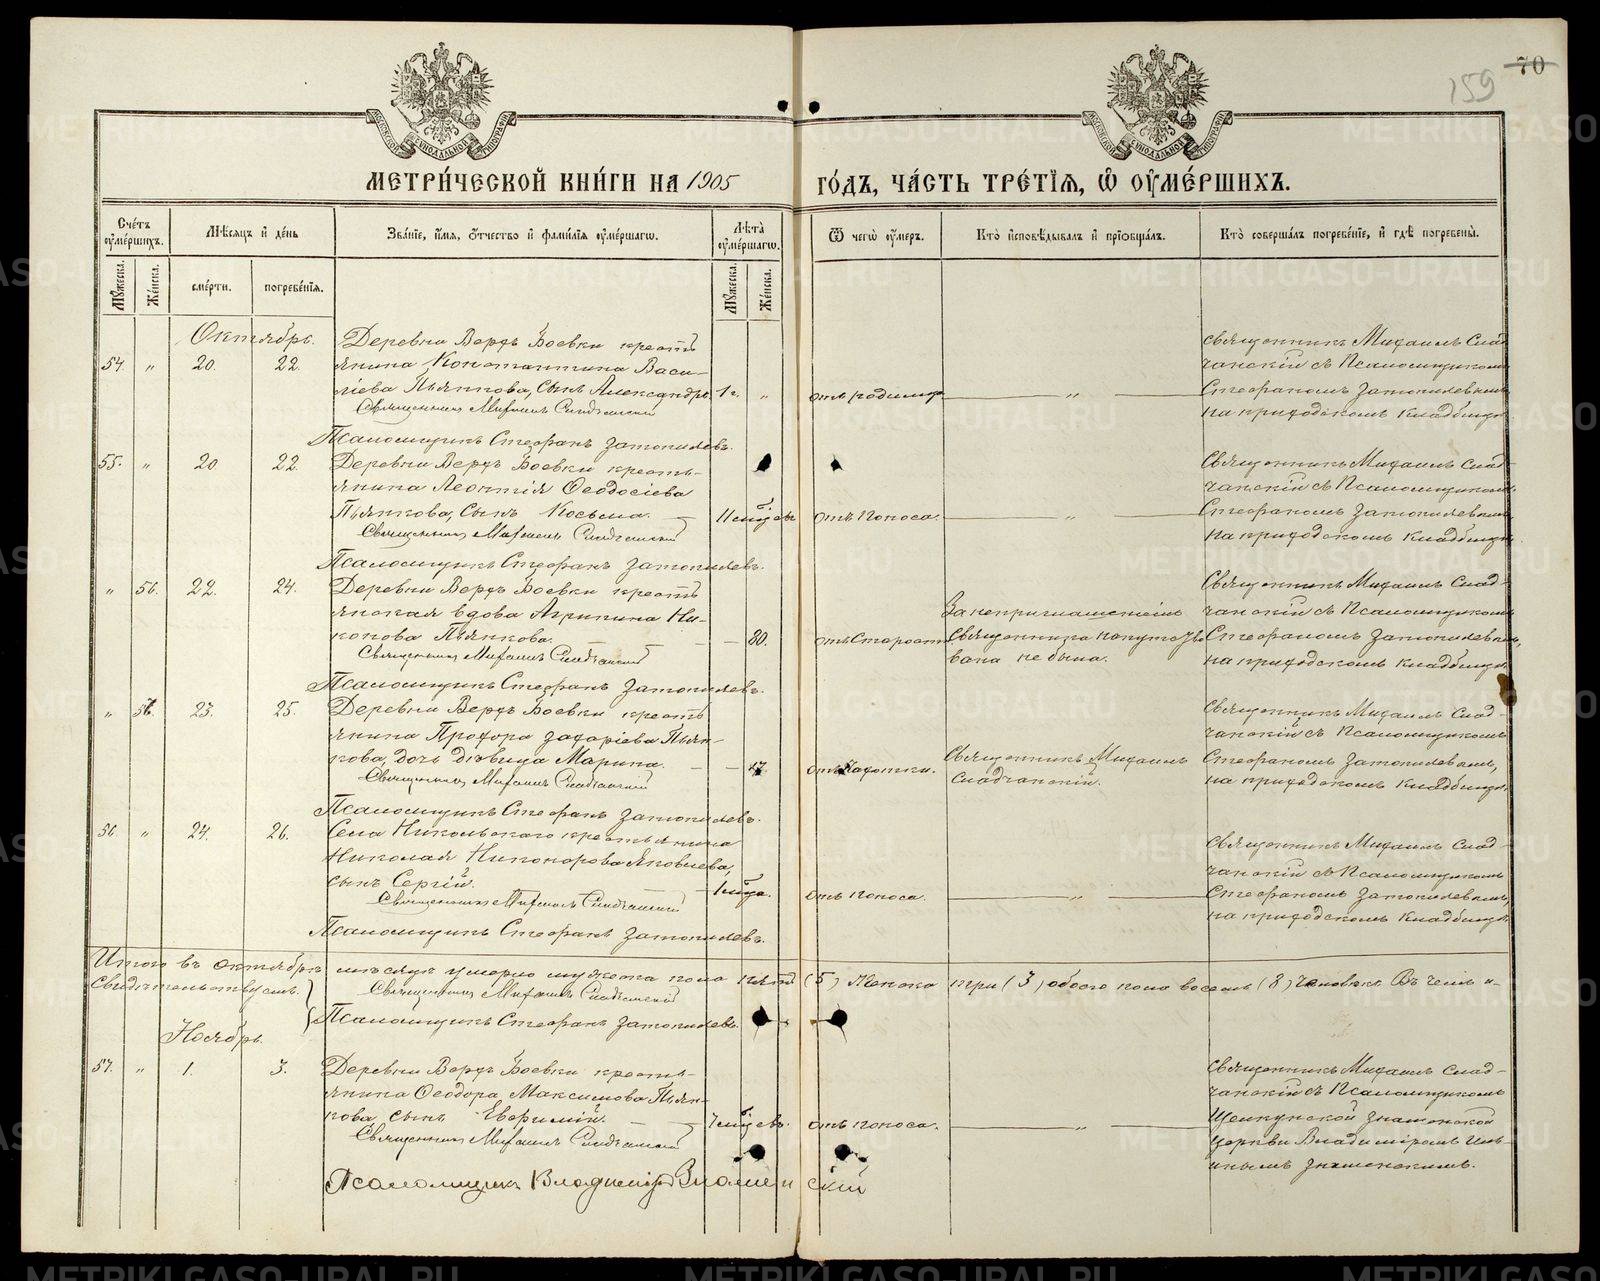 159
70
МЕТРИ́ЧЕСКОЙ КНИ́ГИ НА 1905 ГО́ДЪ, ЧА́СТЬ ТРЕ́ТІЯ, Ѿ ОУМЕ́РШИХЪ.
Сче́тъ оуме́ршихъ.
Мѣ́сяцъ и҆ де́нь
Зва́нїе, и҆́мѧ, ѻ҆́тчество и҆ фами́лїѧ оуме́ршагѡ.
Лѣ́та оуме́ршагѡ.
Ѿ чегѡ̀ оу҆́меръ.
Кто̀ и҆сповѣ́дывалъ и҆ прїобща́лъ.
Кто̀ соверша́лъ погребе́нїе, и҆ гдѣ̀ погребены̀.
Мꙋ́жеска.
Же́нска.
сме́рти.
погребе́нїѧ.
Мꙋ́жеска.
Же́нска.
Октябрь.
Деревни Верхъ Боевки кресть
54. " 20. 22. янина Константина Васи-
ліева Пьянкова, сынъ Александръ. 1 г. " отъ родимца
Священникъ Михаилъ Сладчанскій
Псаломщикъ Стефанъ Затопляевъ.
Священникъ Михаилъ Слад
чанскій съ Псаломщикомъ
Стефаномъ Затопляевымъ
на приходскомъ кладбищѣ.
55. " 20 22. Деревни Верхъ Боевки кресть-
янина Леонтія Ѳеодосіева
Пьянкова, сынъ Косьма. 11 мѣсцевъ отъ поноса.
Священникъ Михаилъ Сладчанскій
Псаломщикъ Стефанъ Затопляевъ.
Священникъ Михаилъ Слад-
чанскій съ Псаломщикомъ
Стефаномъ Затопляевымъ
на приходскомъ кладбищѣ
" 56. 22. 24. Деревни Верхъ Боевки кресть
янская вдова Агрипина Ни-
конова Пьянкова. 80. отъ старости
Священникъ Михаилъ Сладчанскій
Псаломщикъ Стефанъ Затопляевъ.
За неприглашеніемъ
Священника напутство
вана не была.
Священникъ Михаилъ Слад-
чанскій съ Псаломщикомъ
Стефаномъ Затопляевымъ,
на приходскомъ кладбищѣ.
" 23. 25. Деревни Верхъ Боевки кресть
янина Прохора Захаріева Пьян-
кова, дочь дѣвица Марина. 17. отъ чахотки.
Священникъ Михаилъ Сладчанскій
Псаломщикъ Стефанъ Затопляевъ.
Священникъ Михаилъ
Сладчанскій.
Священникъ Михаилъ Слад-
чанскій съ Псаломщикомъ
Стефаномъ Затопляевымъ,
на приходскомъ кладбищѣ.
56 " 24. 26. Села Никольскаго крестьянина
Николая Никонорова Яковлева,
сынъ Сергій. 1 мѣсца. отъ поноса.
Священникъ Михаилъ Сладчанскій
Псаломщикъ Стефанъ Затопляевъ.
Священникъ Михаилъ Слад-
чанскій съ Псаломщикомъ
Стефаномъ Затопляевымъ,
на приходскомъ кладбищѣ
Итого въ октябрѣ мѣсяцѣ умерло мужеска пола пять (5) женска три (3) обоего пола восемь (8) человѣкъ. Въ чемъ и
свидѣтельствуемъ.
Священникъ Михаилъ Сладчанскій
Псаломщикъ Стефанъ Затопляевъ.
Ноябрь.
57. " 1. 3. Деревни Верхъ Боевки кресть-
янина Ѳеодора Максимова Пьян-
кова, сынъ Евфимій. 7 мѣсцевъ. отъ поноса.
Священникъ Михаилъ Сладчанскій
Псаломщикъ Владиміръ Знаменскій
Священникъ Михаилъ Слад-
чанскій съ Псаломщикомъ
Щелкунской Знаменской
церкви Владиміромъ
Знаменскимъ.
METRIKI.GASO-URAL.RU